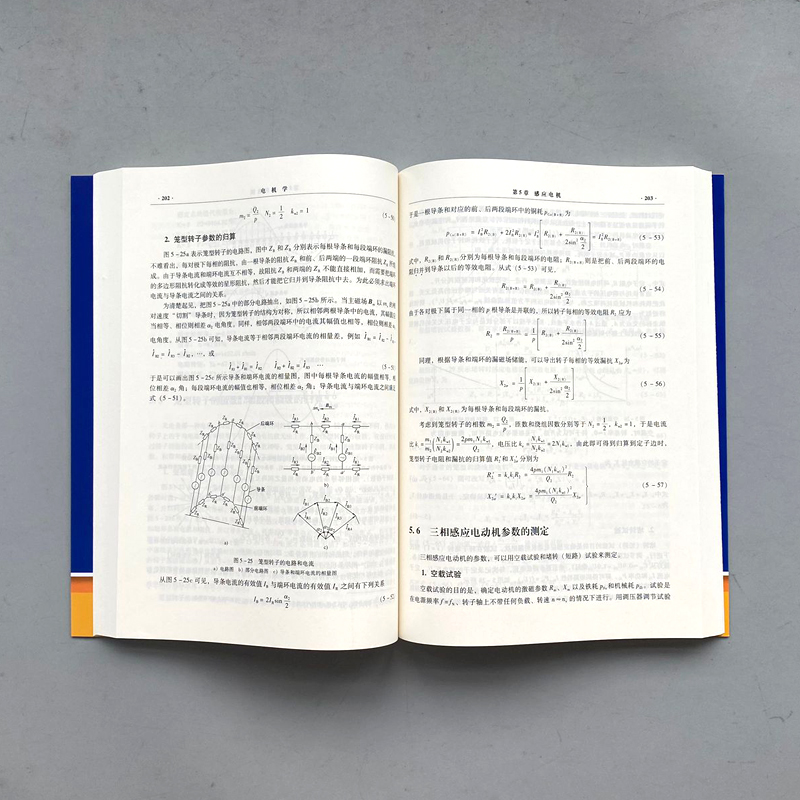 ·202·
电 机 学
m₂ = Q₂/p  N₂ = 1/2  k_w2 = 1
2. 笼型转子参数的归算
图 5-25a 表示笼型转子的电路图,图中 Z_B 和 Z_R 分别表示每根导条和每段端环的漏阻抗。
不难看出,每对极下每相的阻抗,由一根导条的阻抗 Z_B 和前、后两端的一段端环阻抗 Z_R 所组
成。由于导条电流和端环电流互不相等,故阻抗 Z_B 和两端的 Z_R 不能直接相加,而需要把端环
的多边形阻抗转化成等效的星形阻抗,然后才能把它归并到导条阻抗中去。为此必须求出端环
电流与导条电流之间的关系。
为清楚起见,把图 5-25a 中的部分电路抽出,如图 5-25b 所示。当主磁场
对速度“切割”导条时,因为笼型转子的结构为对称,所以相邻两根导条中的电流,其幅值应
当相等、相位则相差 α₂ 电角度。同样,相邻两段端环中的电流其幅值也相等,相位则相差 α₂
电角度。从图 5-25b 可知,导条电流等于相邻两段端环电流的相量差,例如
,或
(5-51)
于是可以画出图 5-25c 所示导条和端环电流的相量图,图中每根导条电流的幅值相等,相
位相差 α₂ 角;每段端环电流的幅值也相等,相位相差 α₂ 角;导条电流与端环电流之间满足
式(5-51)。
后端环
导条
前端环
a)
b)
c)
图 5-25 笼型转子的电路和电流
a) 电路图 b) 部分电路图 c) 导条和端环电流的相量图
从图 5-25c 可见,导条电流的有效值 I_B 与端环电流的有效值 I_R 之间有下列关系
I_B = 2I_R sin α₂/2 (5-52
第 5 章 感应电机
·203·
于是一根导条和对应的前、后两段端环中的铜耗 p_(B+R) 为
(5-53)
式中,R_2(B) 和 R_2(R) 分别为每根导条和每段端环的电阻;R_2(B+R) 则是把前、后两段端环的电
阻归并到导条以后的等效电阻。从式(5-53)可见,
R_2(B+R) = R_2(B) + R_2(R)/(2sin² α₂/2) (5-54)
由于各对极下属于同一相的 p 根导条是并联的,所以转子每相的等效电阻 R₂ 应为
R₂ = R_2(B+R)/p = 1/p [R_2(B) + R_2(R)/(2sin² α₂/2)] (5-55)
同理,根据导条和端环的漏磁场储能,可以导出转子每相的等效漏抗 X_2σ 为
X_2σ = 1/p [X_2(B) + X_2(R)/(2sin² α₂/2)] (5-56)
式中,X_2(B) 和 X_2(R) 为每根导条和每段端环的漏抗。
考虑到笼型转子的相数 m₂ = Q₂/p,匝数和绕组因数分别等于 N₂ = 1/2,k_w2 = 1,于是电流
比 k_i = m₁N₁k_w1/(m₂N₂k_w2) = 2pm₁N₁k_w1/Q₂,电压比 k_e = N₁k_w1/(N₂k_w2) = 2N₁k_w1,由此即可得到归算到定子边时,
笼型转子电阻和漏抗的归算值 R₂′ 和 X_2σ′ 分别为
R₂′ = k_e k_i R₂ = 4pm₁(N₁k_w1)²/Q₂ R₂
X_2σ′ = k_e k_i X_2σ = 4pm₁(N₁k_w1)²/Q₂ X_2σ (5-57)
5.6 三相感应电动机参数的测定
三相感应电动机的参数,可以用空载试验和堵转(短路)试验来测定。
1. 空载试验
空载试验的目的是,确定电动机的激磁参数 R_m、X_m 以及铁耗 p_Fe 和机械耗 p_Ω。试验是
在电源频率 f=f_N、转子轴上不带任何负载、转速 n≈n_s 的情况下进行。用调压器调节试验